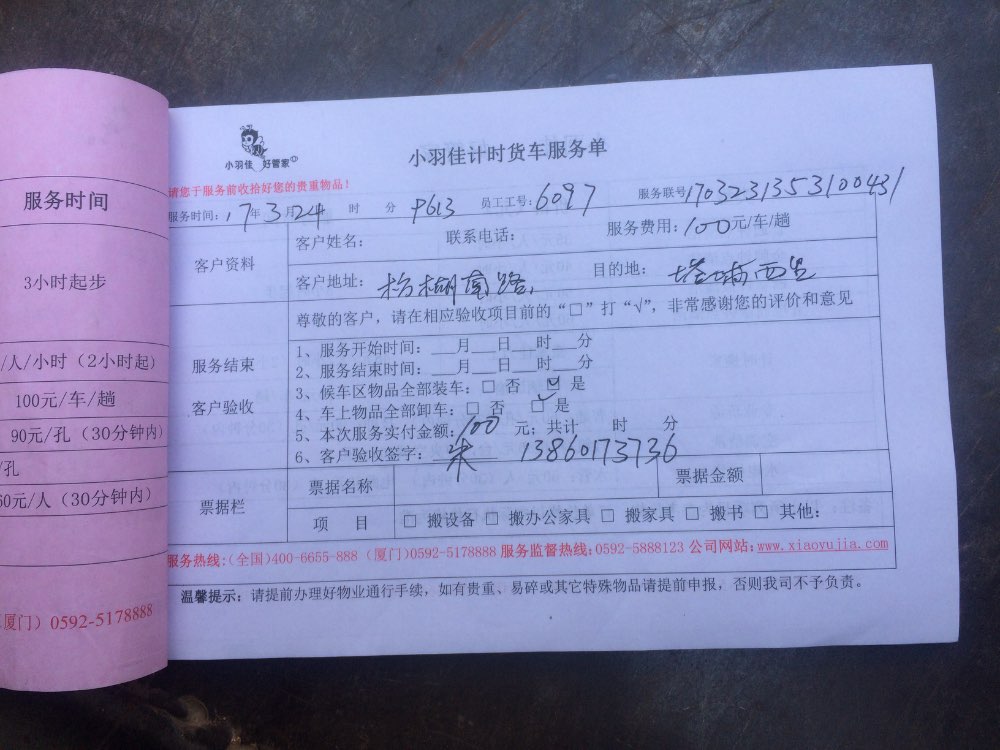 服务时间
3小时起步
/人/小时（2小时起）
100元/车/趟
90元/孔（30分钟内）
/孔
60元/人（30分钟内）
（厦门）0592-5178888
小羽佳 好管家
小羽佳计时货车服务单
请您于服务前收拾好您的贵重物品！
服务时间：17年3月24 时 分 P613 员工工号：6097 服务联号1703231353100431
客户资料
客户姓名： 联系电话： 服务费用：100元/车/趟
客户地址： 南路 目的地： 塔埔西里
尊敬的客户，请在相应验收项目前的“□”打“√”，非常感谢您的评价和意见
服务结束
客户验收
1、服务开始时间：___月___日___时___分
2、服务结束时间：___月___日___时___分
3、候车区物品全部装车：□ 否 ☑ 是
4、车上物品全部卸车：□ 否 ☑ 是
5、本次服务实付金额：100 元；共计 时 分
6、客户验收签字：朱 13860173736
票据栏
票据名称 票据金额
项 目 □ 搬设备 □ 搬办公家具 □ 搬家具 □ 搬书 □ 其他：
服务热线：（全国）400-6655-888（厦门）0592-5178888 服务监督热线：0592-5888123 公司网站：www.xiaoyujia.com
温馨提示：请提前办理好物业通行手续，如有贵重、易碎或其它特殊物品请提前申报，否则我司不予负责。